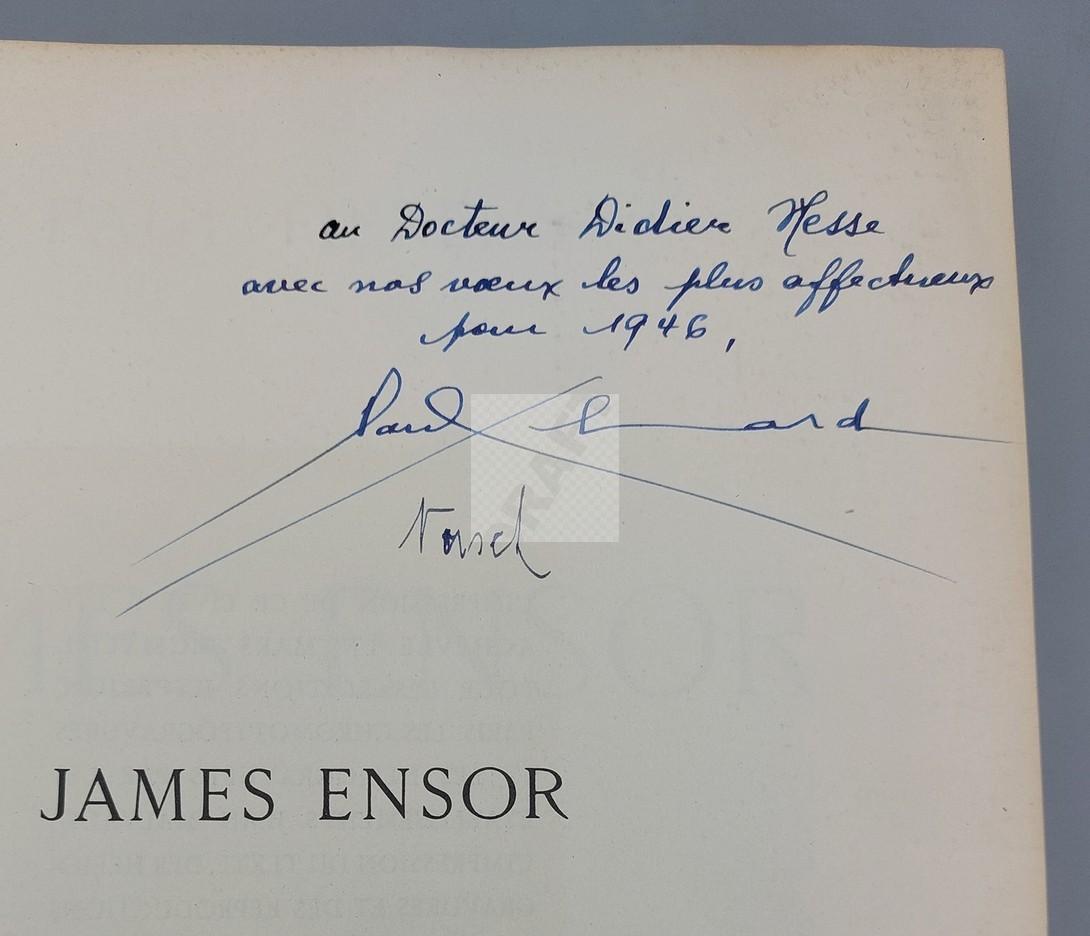 au Docteur Didier Hesse
avec nos vœux les plus affectueux
pour 1946,
Paul Eluard
Nusch
JAMES ENSOR